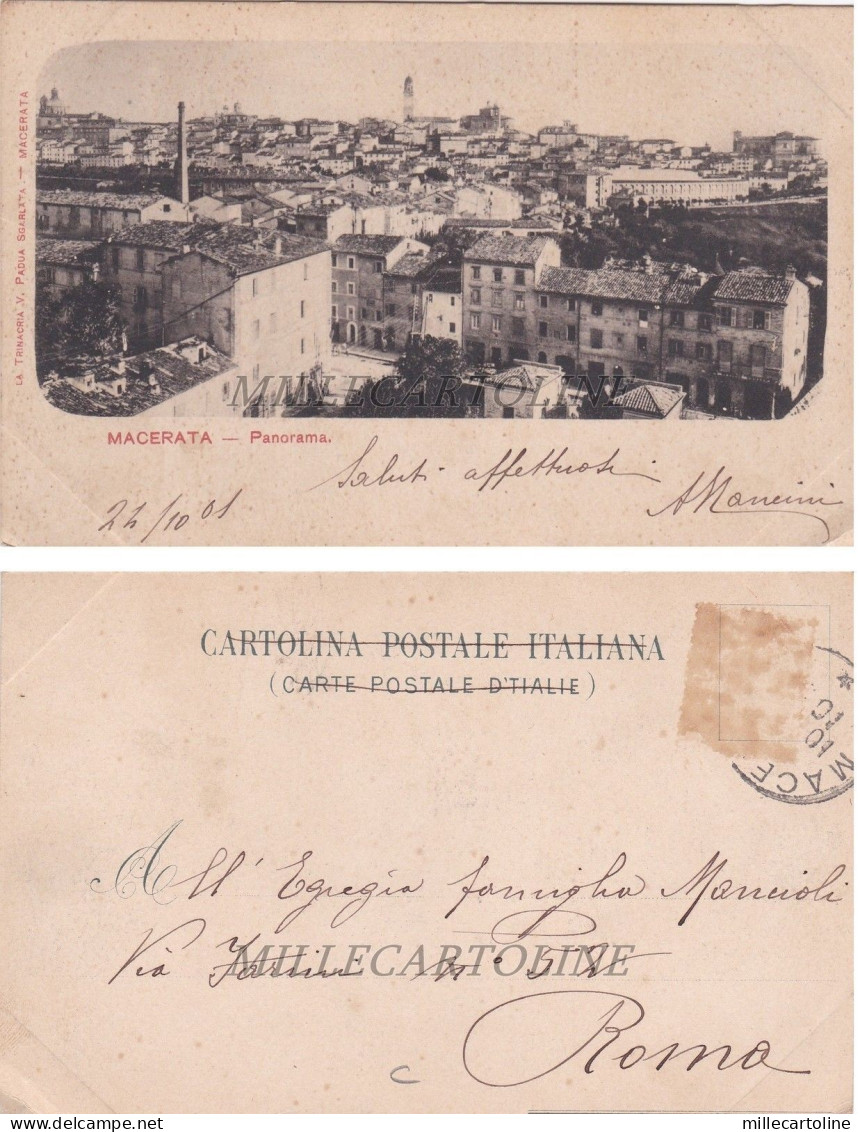 LA TRINACRIA V. PADUA SGARLATA — MACERATA
MMLECARTOLINE
MACERATA — Panorama.
Saluti affettuosi
AMancini
22/10 01
CARTOLINA POSTALE ITALIANA
(CARTE POSTALE D'ITALIE)
MACE
10
01
All' Egregia famiglia Mancioli
Via Farini n° 52
MILLECARTOLINE
Roma
C
millecartoline